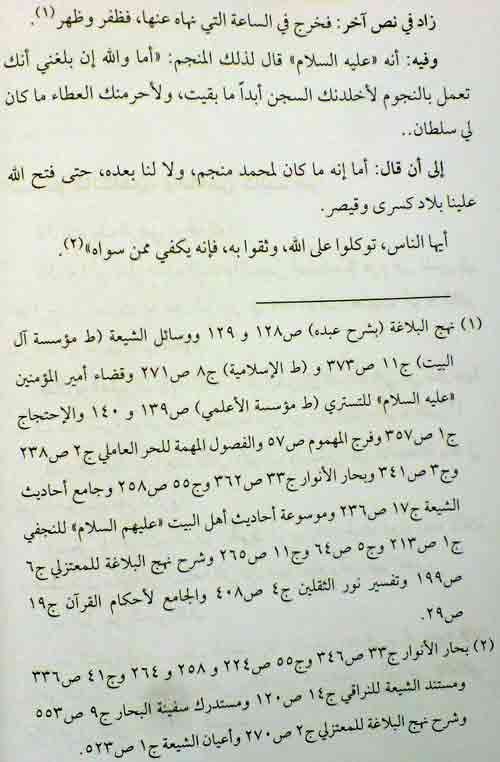 زاد في نص آخر: فخرج في الساعة التي نهاه عنها، فظفر وظهر(١).
وفيه: أنه «عليه السلام» قال لذلك المنجم: «أما والله إن بلغني أنك
تعمل بالنجوم لأخلدنك السجن أبداً ما بقيت، ولأحرمنك العطاء ما كان
لي سلطان..
إلى أن قال: أما إنه ما كان لمحمد منجم، ولا لنا بعده، حتى فتح الله
علينا بلاد كسرى وقيصر.
أيها الناس، توكلوا على الله، وثقوا به، فإنه يكفي ممن سواه»(٢).
(١) نهج البلاغة (بشرح عبده) ص١٢٨ و ١٢٩ ووسائل الشيعة (ط مؤسسة آل
البيت) ج١١ ص٣٧٣ و (ط الإسلامية) ج٨ ص٢٧١ وقضاء أمير المؤمنين
«عليه السلام» للتستري (ط مؤسسة الأعلمي) ص١٣٩ و ١٤٠ والإحتجاج
ج١ ص٣٥٧ وفرج المهموم ص٥٧ والفصول المهمة للحر العاملي ج٢ ص٢٣٨
وج٣ ص٣٤١ وبحار الأنوار ج٣٣ ص٣٦٢ وج٥٥ ص٢٥٨ وجامع أحاديث
الشيعة ج١٧ ص٢٣٦ وموسوعة أحاديث أهل البيت «عليهم السلام» للنجفي
ج١ ص٢١٣ وج٥ ص٦٤ وج١١ ص٢٦٥ وشرح نهج البلاغة للمعتزلي ج٦
ص١٩٩ وتفسير نور الثقلين ج٤ ص٤٠٨ والجامع لأحكام القرآن ج١٩
ص٢٩.
(٢) بحار الأنوار ج٣٣ ص٣٤٦ وج٥٥ ص٢٢٤ و ٢٥٨ و ٢٦٤ وج٤١ ص٣٣٦
ومستند الشيعة للنراقي ج١٤ ص١٢٠ ومستدرك سفينة البحار ج٩ ص٥٥٣
وشرح نهج البلاغة للمعتزلي ج٢ ص٢٧٠ وأعيان الشيعة ج١ ص٥٢٣.